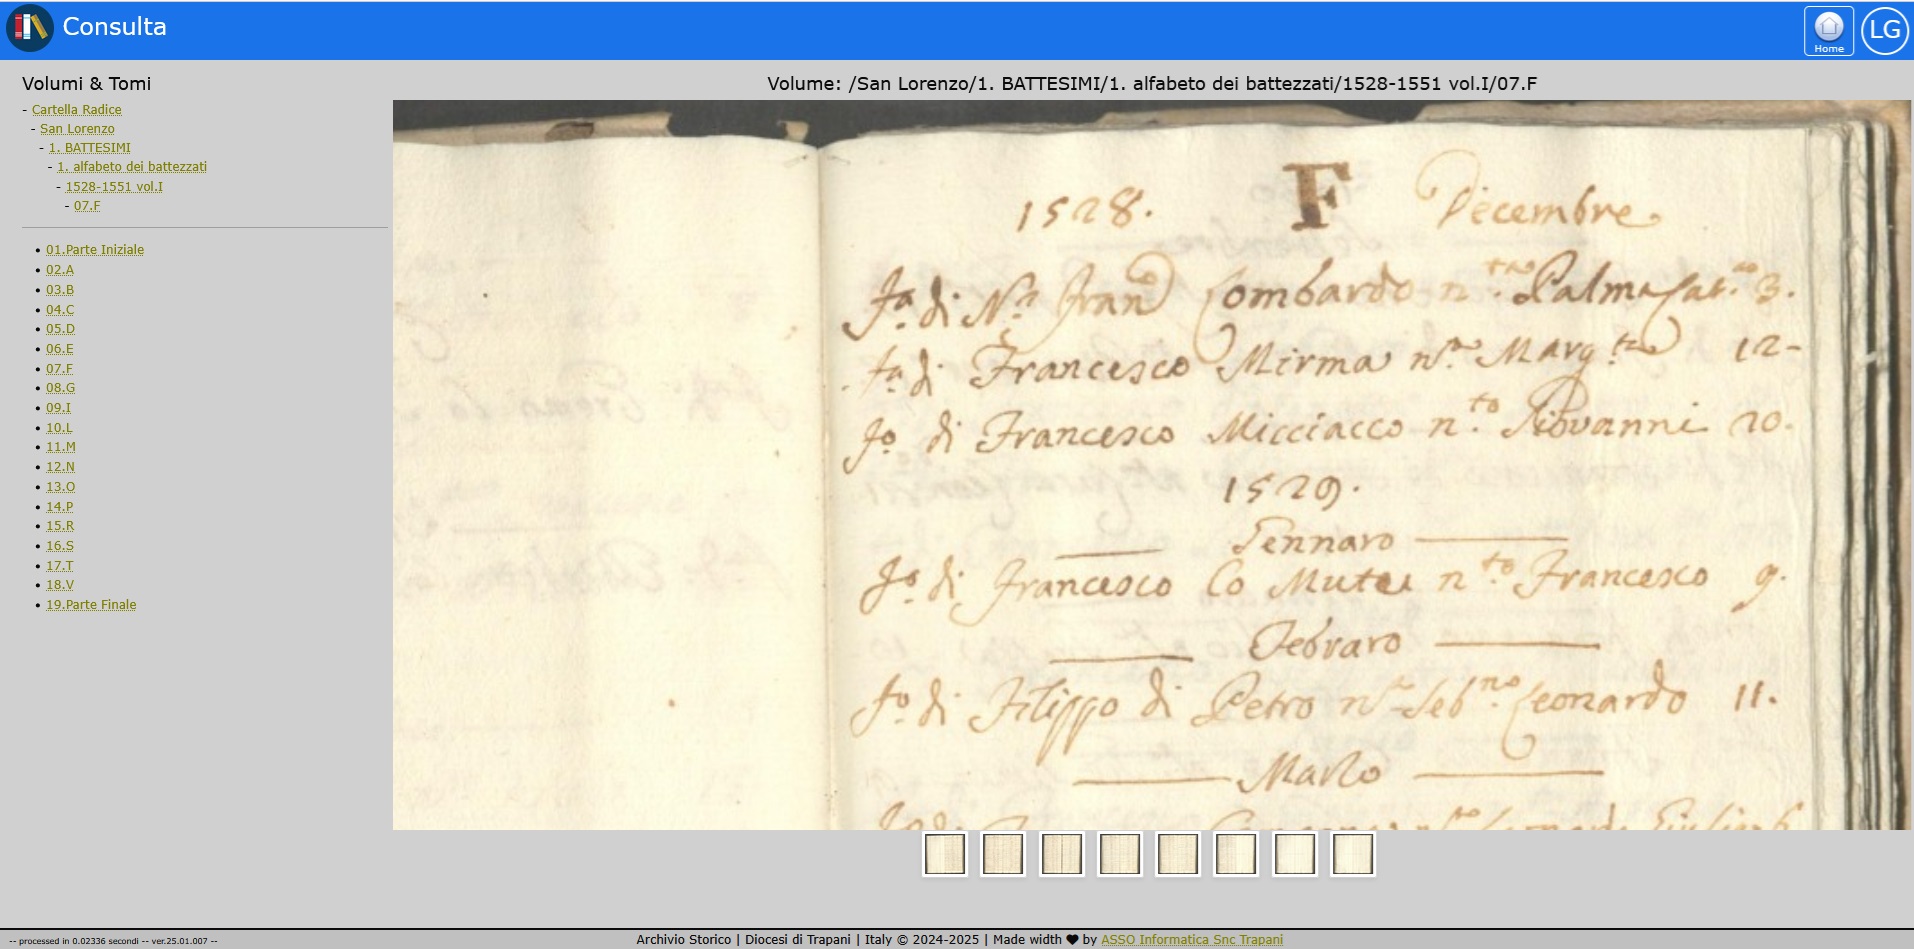 Consulta
Home
LG
Volumi & Tomi
- Cartella Radice
- San Lorenzo
- 1. BATTESIMI
- 1. alfabeto dei battezzati
- 1528-1551 vol.I
- 07.F
• 01.Parte Iniziale
• 02.A
• 03.B
• 04.C
• 05.D
• 06.E
• 07.F
• 08.G
• 09.I
• 10.L
• 11.M
• 12.N
• 13.O
• 14.P
• 15.R
• 16.S
• 17.T
• 18.V
• 19.Parte Finale
Volume: /San Lorenzo/1. BATTESIMI/1. alfabeto dei battezzati/1528-1551 vol.I/07.F
1528. F Decembre
fa. di Nr. Fran Lombardo n. Palma 3.
fa. di Francesco Mirma nta Marg.ta 12-
fo. di Francesco Micciacco n.to Giovanni 20.
1529.
Gennaro
fo. di Francesco Lo Mutei n.to Francesco 9.
Febraro
fo. di Filippo di Petro Seb.no Leonardo 11.
Marzo
-- processed in 0.02336 secondi -- ver.25.01.007 --
Archivio Storico | Diocesi di Trapani | Italy © 2024-2025 | Made width ♥ by ASSO Informatica Snc Trapani